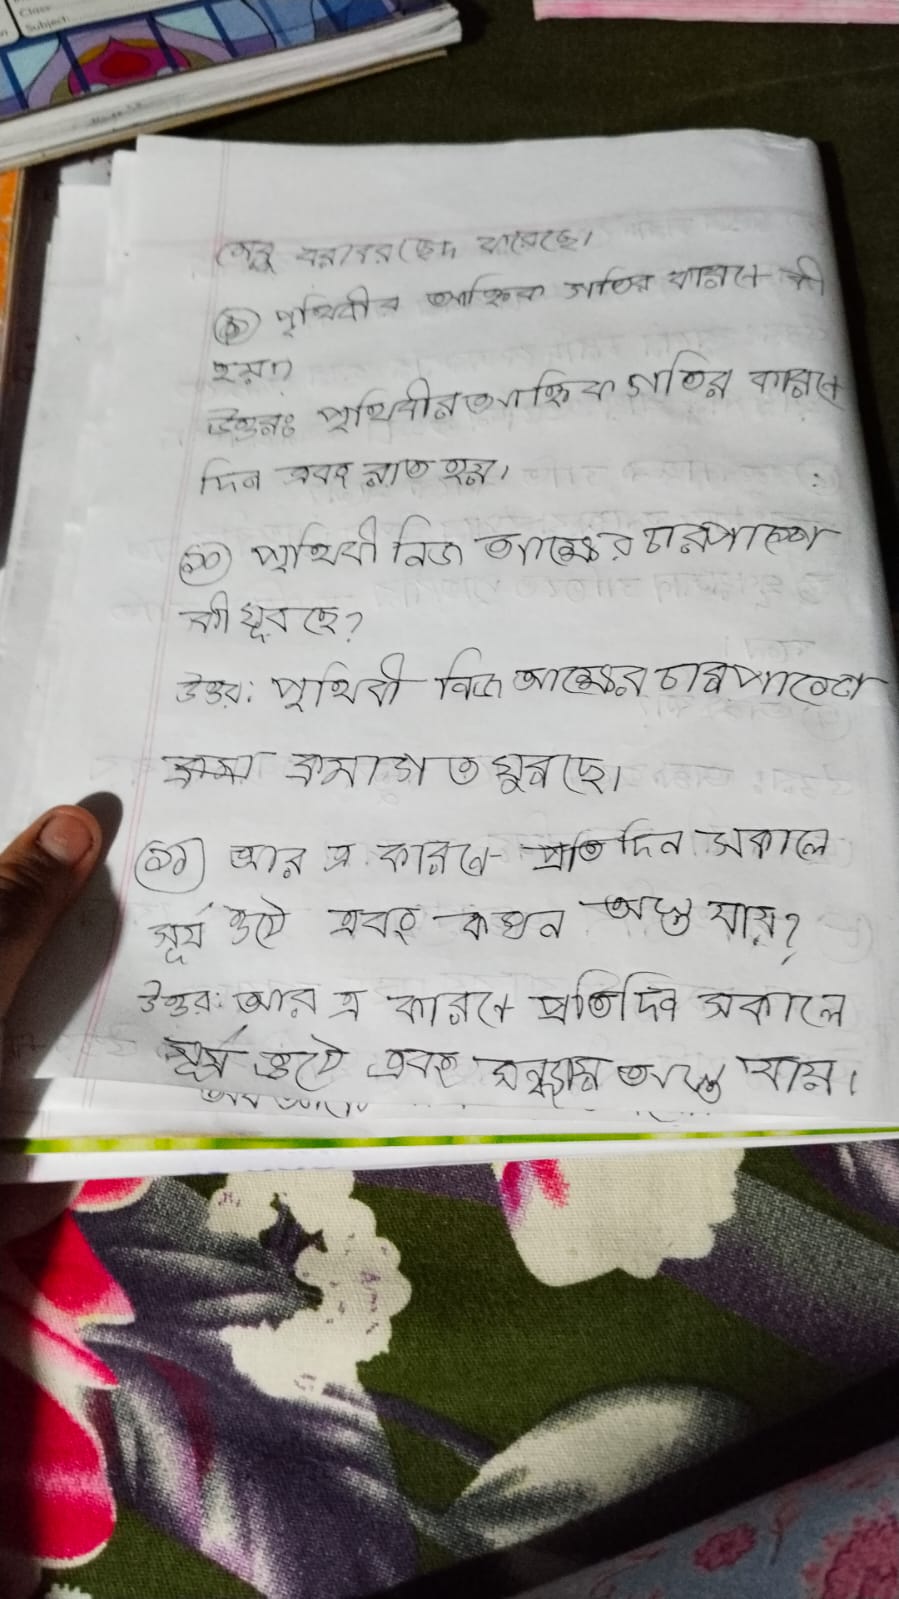 Class:
Subject:
মেরু বরাবর ছেদ করেছে।
৯ পৃথিবীর আহ্নিক গতির কারণে কী
হয়?
উত্তরঃ পৃথিবীর আহ্নিক গতির কারণে
দিন এবং রাত হয়।
১০ পৃথিবী নিজ আক্ষের চারপাশে
কী ঘুরছে?
উত্তর: পৃথিবী নিজ আক্ষের চারপাশে
ক্রমাগত ঘুরছে।
১১ আর এ কারণে প্রতিদিন সকালে
সূর্য ওঠে এবং কখন অস্ত যায়?
উত্তর: আর এ কারণে প্রতিদিন সকালে
সূর্য ওঠে এবং সন্ধ্যায় অস্ত যায়।